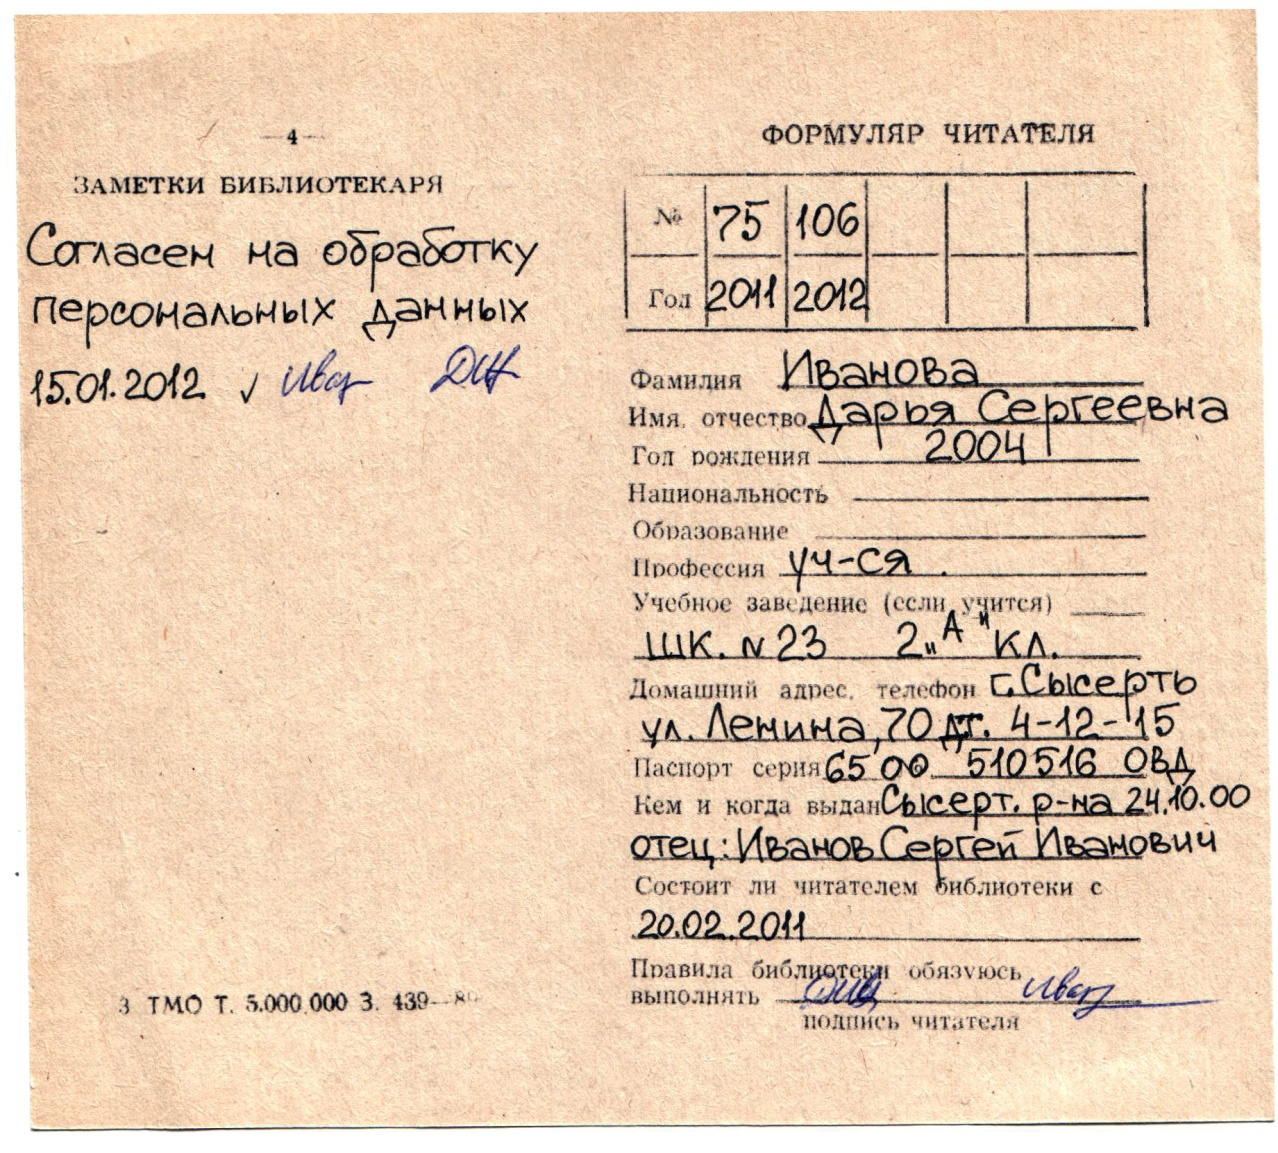 — 4 —
ЗАМЕТКИ БИБЛИОТЕКАРЯ
Согласен на обработку
персональных данных
15.01.2012 ✓ Иван
З ТМО Т. 5.000.000 З. 439—
ФОРМУЛЯР ЧИТАТЕЛЯ
№ 75 106
Год 2011 2012
Фамилия Иванова
Имя, отчество Дарья Сергеевна
Год рождения 2004
Национальность
Образование
Профессия уч-ся
Учебное заведение (если учится)
шк. N 23 2 „А" кл.
Домашний адрес, телефон г. Сысерть
ул. Ленина, 70 дт. 4-12-15
Паспорт серия 65 00 510516 ОВД
Кем и когда выдан Сысерт. р-на 24.10.00
отец: Иванов Сергей Иванович
Состоит ли читателем библиотеки с
20.02.2011
Правила библиотеки обязуюсь
выполнять
подпись читателя